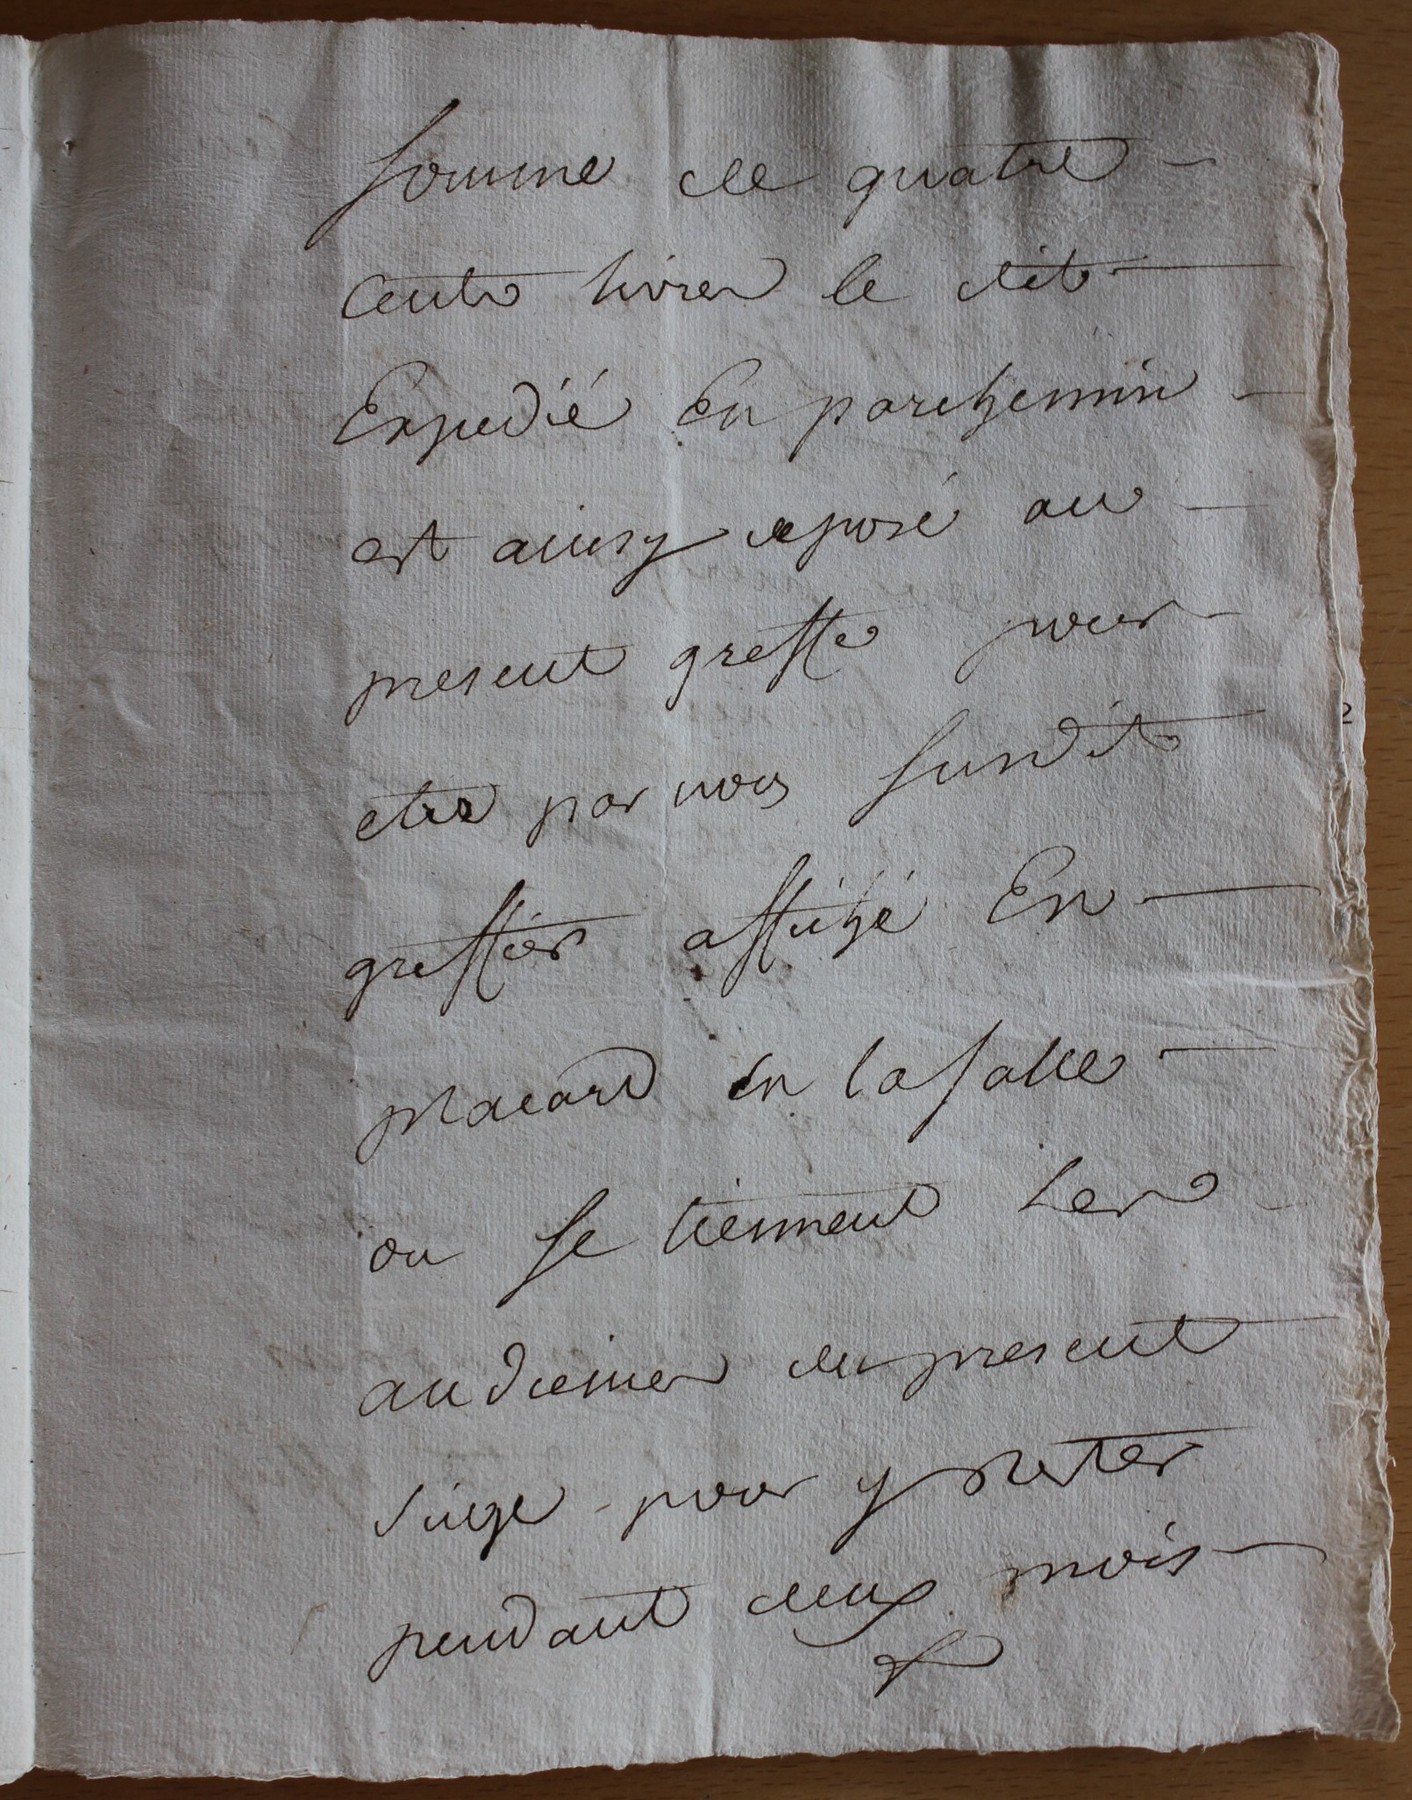 somme de quatre
cents livres le dit
Expedié En parchemin
est ainsy deposé au
present greffe pour
etre par nous susdit
greffier affiché En
placard En la salle
ou se tiennent les
audiences du present
siege pour y rester
pendant deux mois
2